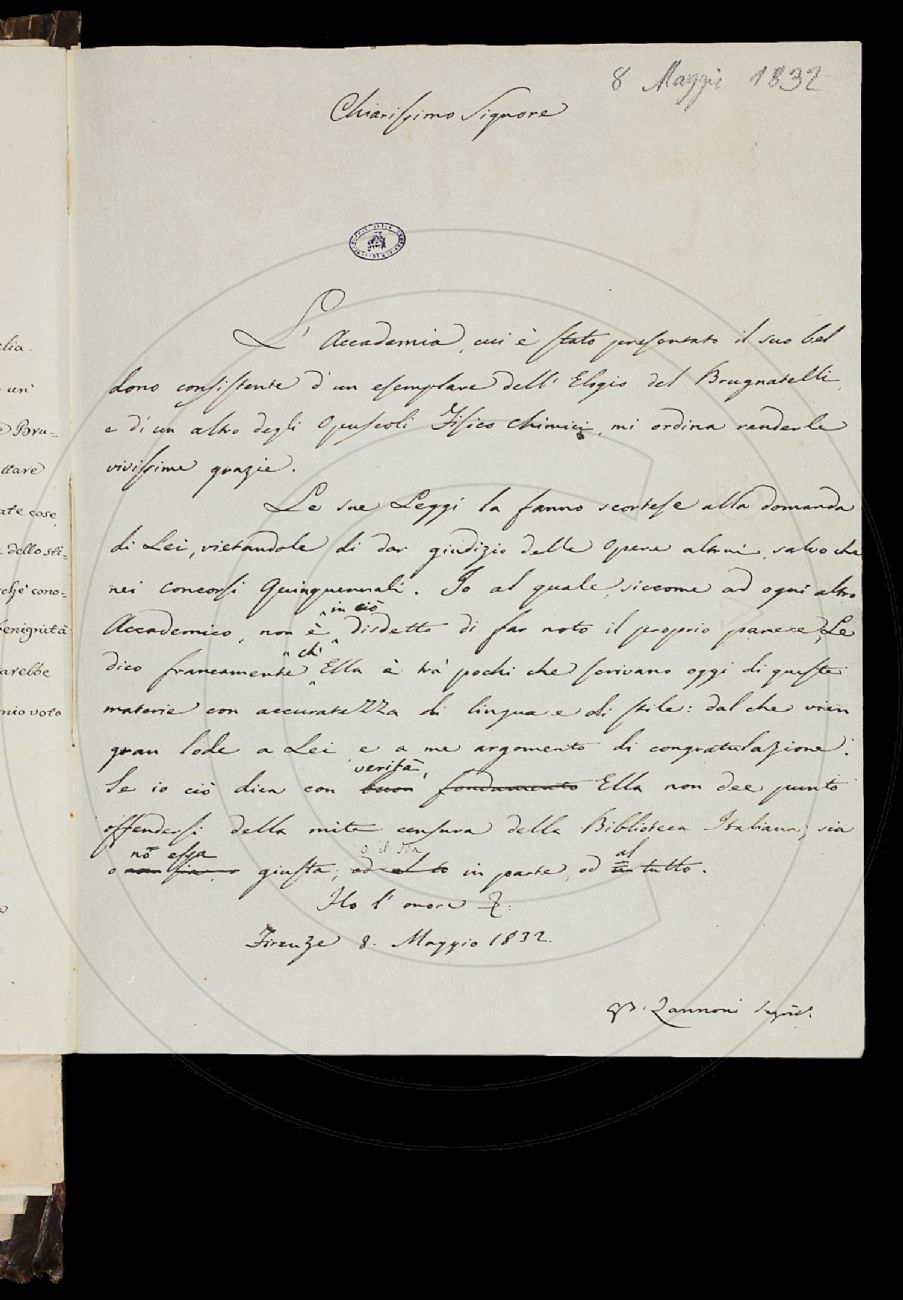 8 Maggio 1832
Chiarissimo Signore
L'Accademia, cui è stato presentato il suo bel
dono consistente d'un esemplare dell'Elogio del Brugnatelli,
e d'un altro degli Opuscoli Fisico chimici, mi ordina renderle
vivissime grazie.
Le sue Leggi la fanno scortese alla domanda
di Lei, vietandole di dar giudizio delle Opere altrui, salvo che
nei concorsi Quinquennali. Io al quale, siccome ad ogni altro
in ciò
Accademico, non è disdetto di far noto il proprio parere, Le
ch'
dico francamente Ella è trà pochi che scrivano oggi di queste
materie con accuratezza di lingua e di stile: dal che vien
gran lode a Lei e a me argomento di congratulazione.
verità,
Se io ciò dica con buon fondamento Ella non dee punto
offendersi della mite censura della Biblioteca Italiana, sia
nō essa o il sia al
o giusta; od in parte, od in tutto.
Ho l'onore &.
Firenze 8. Maggio 1832.
Zannoni Segrio.
elia.
un'
Bru-
ttare
ate cose
dello sti-
chè cono-
benignità
arebbe
mio voto